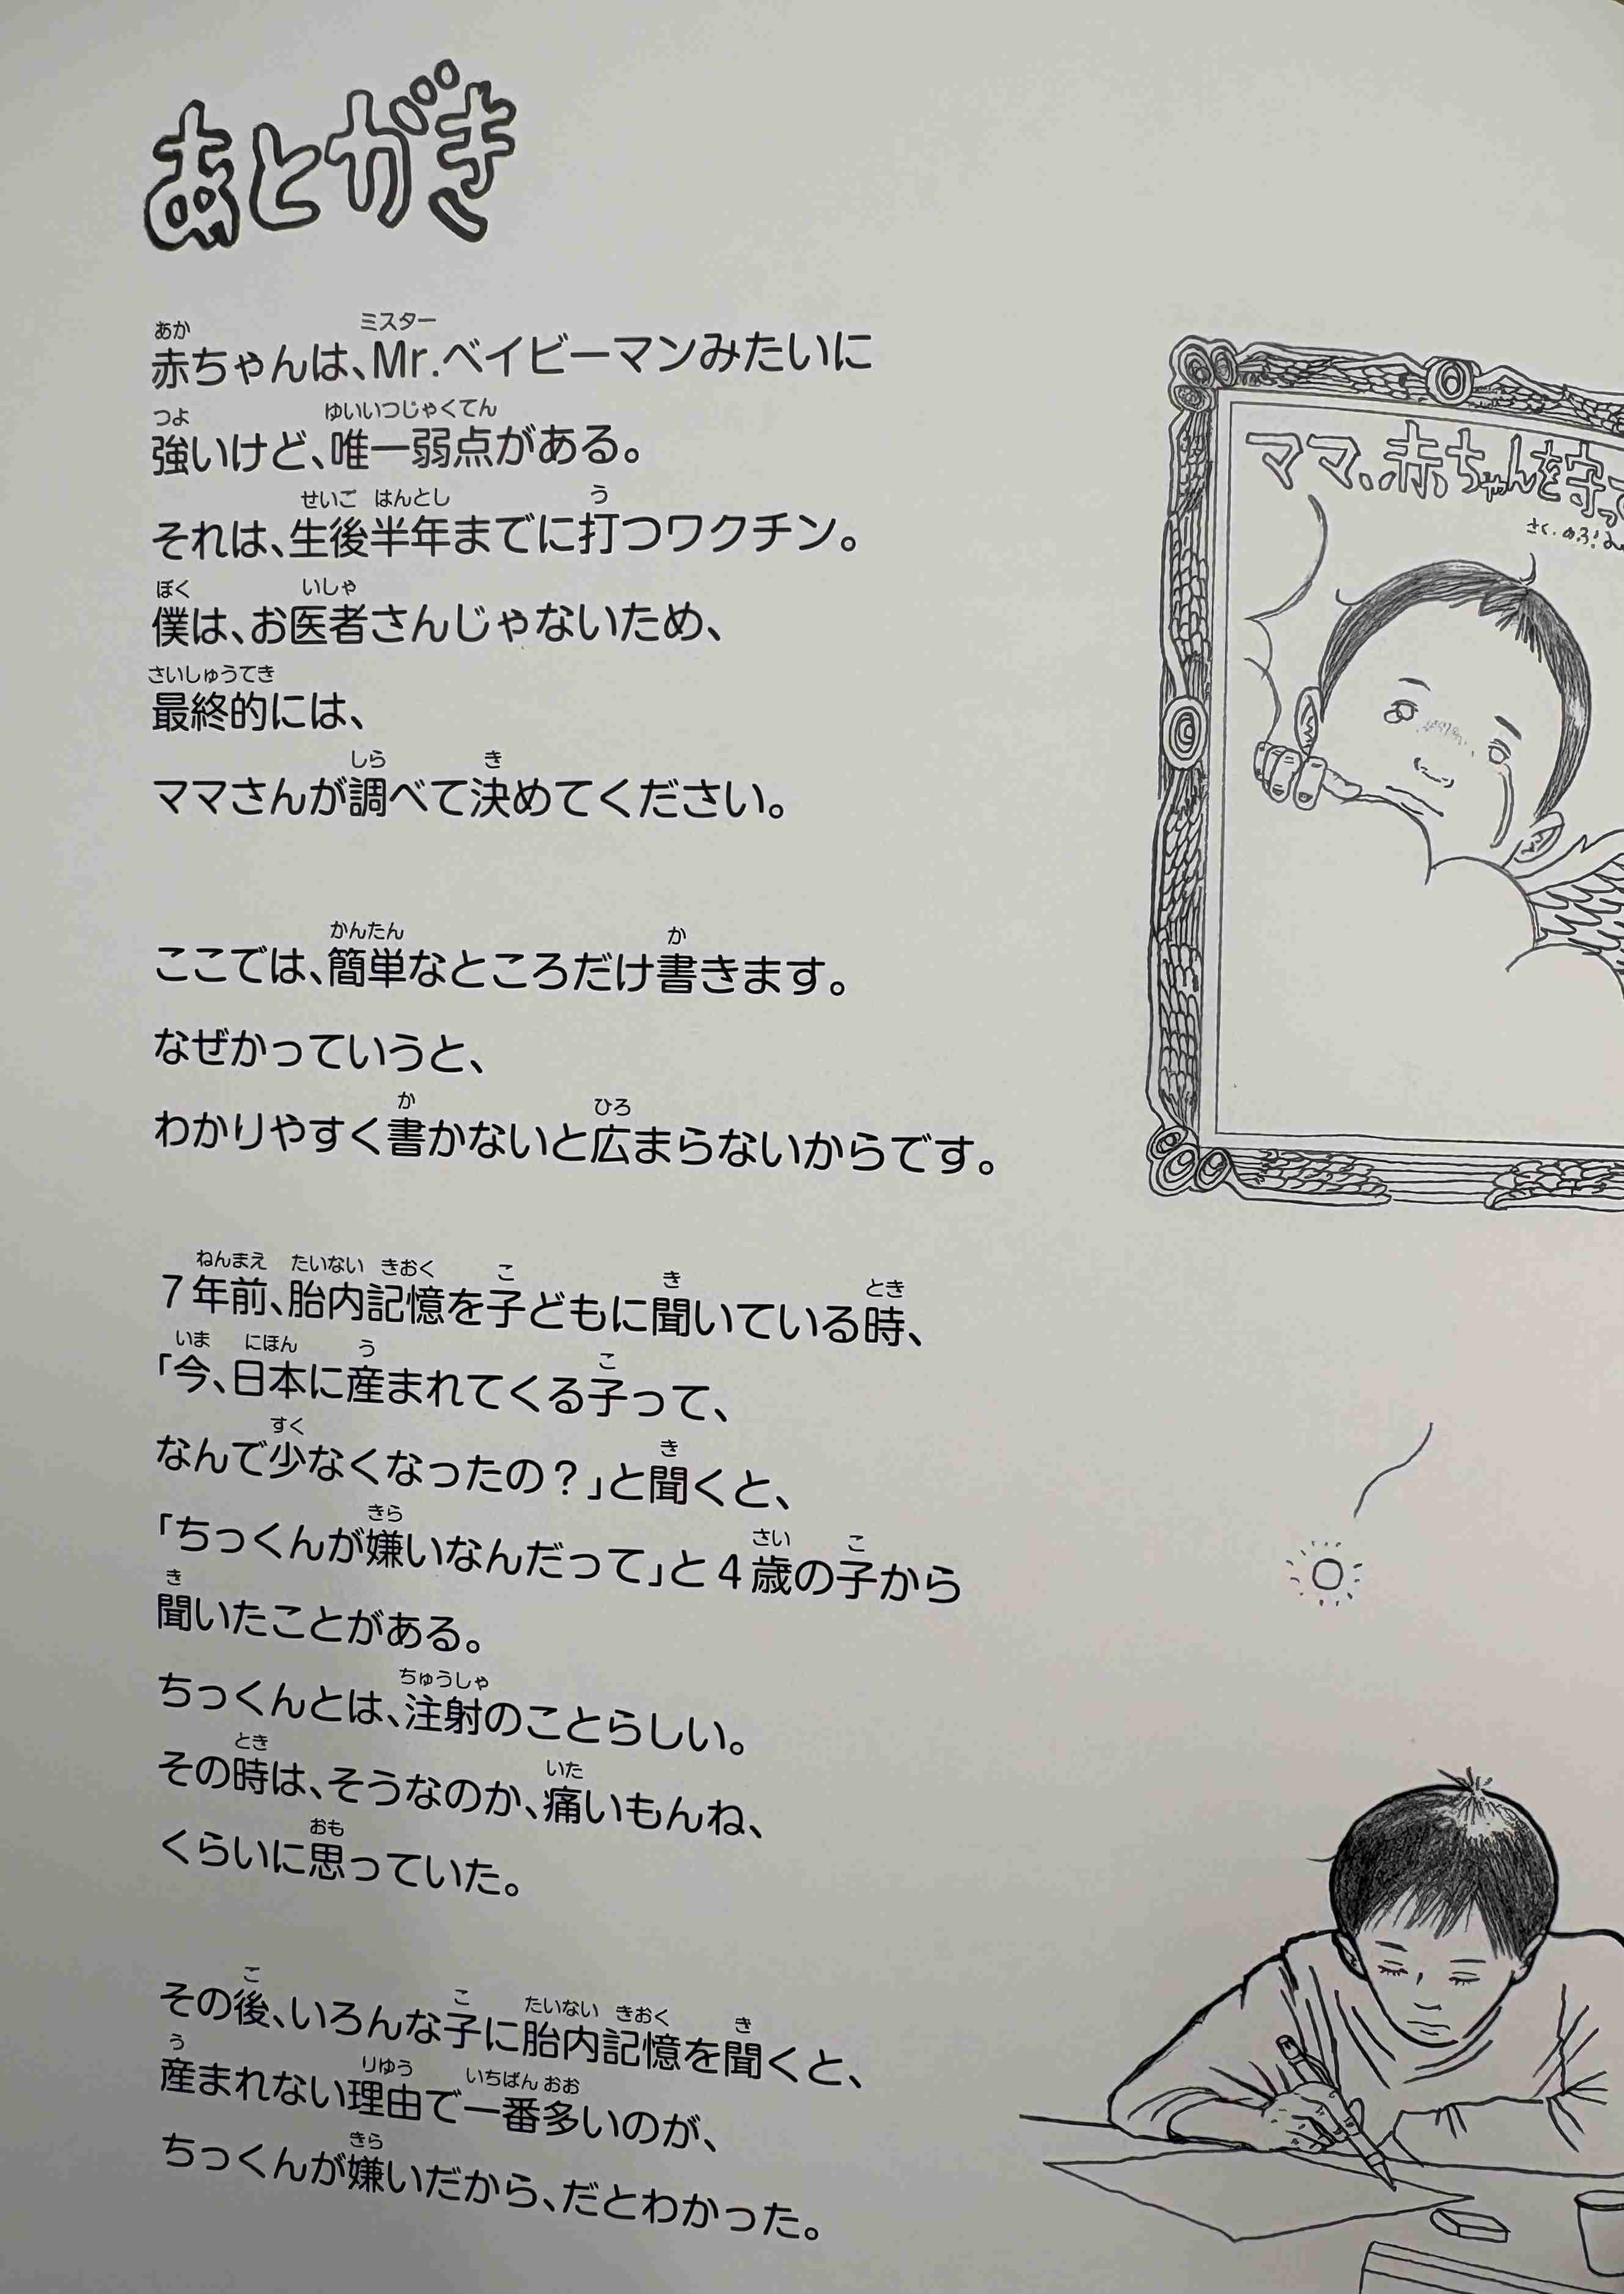 あとがき
赤ちゃんは、Mr.ベイビーマンみたいに
強いけど、唯一弱点がある。
それは、生後半年までに打つワクチン。
僕は、お医者さんじゃないため、
最終的には、
ママさんが調べて決めてください。
ここでは、簡単なところだけ書きます。
なぜかっていうと、
わかりやすく書かないと広まらないからです。
7年前、胎内記憶を子どもに聞いている時、
「今、日本に産まれてくる子って、
なんで少なくなったの？」と聞くと、
「ちっくんが嫌いなんだって」と4歳の子から
聞いたことがある。
ちっくんとは、注射のことらしい。
その時は、そうなのか、痛いもんね、
くらいに思っていた。
その後、いろんな子に胎内記憶を聞くと、
産まれない理由で一番多いのが、
ちっくんが嫌いだから、だとわかった。
ママ、赤ちゃんを守っ
さく.のぶみ